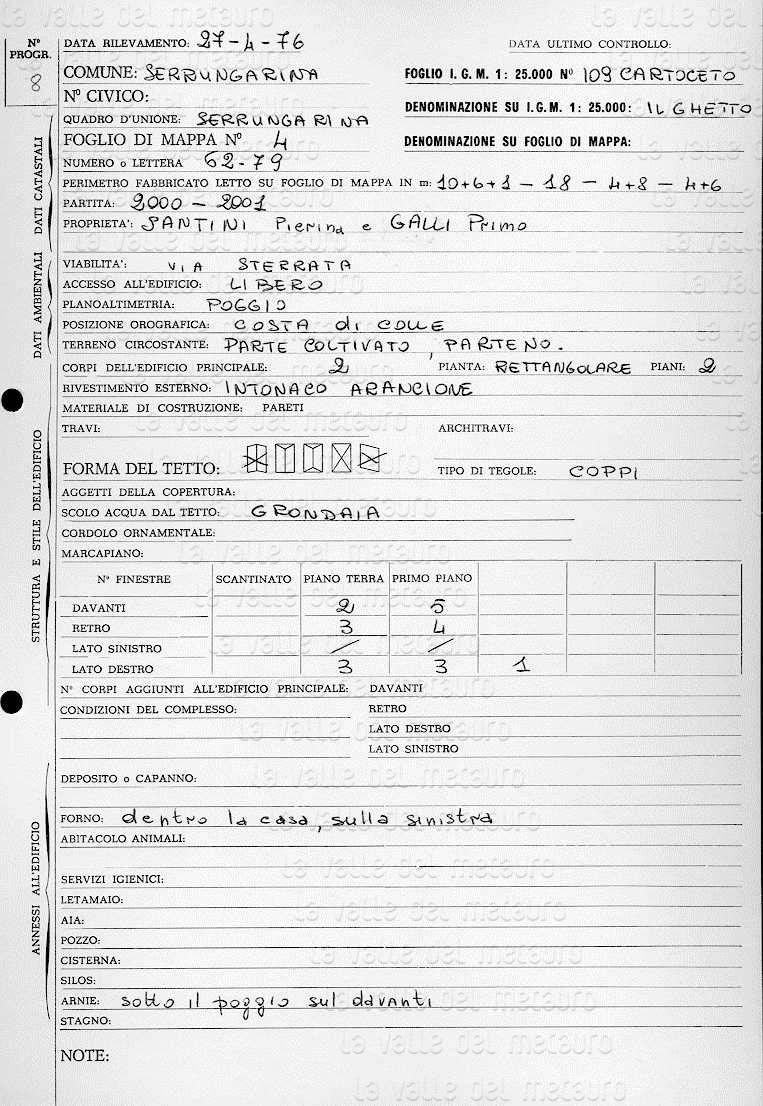 la valle del metauro
N° PROGR. 8
DATA RILEVAMENTO: 27-4-76 DATA ULTIMO CONTROLLO:
COMUNE: SERRUNGARINA FOGLIO I. G. M. 1: 25.000 N° 109 CARTOCETO
N° CIVICO: DENOMINAZIONE SU I. G. M. 1: 25.000: IL GHETTO
QUADRO D'UNIONE: SERRUNGARINA
FOGLIO DI MAPPA N° 4 DENOMINAZIONE SU FOGLIO DI MAPPA:
NUMERO o LETTERA 62-79
PERIMETRO FABBRICATO LETTO SU FOGLIO DI MAPPA IN m: 10+6+1 - 18 - 4+8 - 4+6
PARTITA: 2000 - 2001
PROPRIETA': SANTINI Pierina e GALLI Primo
DATI CATASTALI
VIABILITA': VIA STERRATA
ACCESSO ALL'EDIFICIO: LIBERO
PLANOALTIMETRIA: POGGIO
POSIZIONE OROGRAFICA: COSTA di COLLE
TERRENO CIRCOSTANTE: PARTE COLTIVATO, PARTE NO.
DATI AMBIENTALI
CORPI DELL'EDIFICIO PRINCIPALE: 2 PIANTA: RETTANGOLARE PIANI: 2
RIVESTIMENTO ESTERNO: INTONACO ARANCIONE
MATERIALE DI COSTRUZIONE: PARETI
TRAVI: ARCHITRAVI:
FORMA DEL TETTO: TIPO DI TEGOLE: COPPI
AGGETTI DELLA COPERTURA:
SCOLO ACQUA DAL TETTO: GRONDAIA
CORDOLO ORNAMENTALE:
MARCAPIANO:
N° FINESTRE SCANTINATO PIANO TERRA PRIMO PIANO
DAVANTI 2 5
RETRO 3 4
LATO SINISTRO / /
LATO DESTRO 3 3 1
STRUTTURA E STILE DELL'EDIFICIO
N° CORPI AGGIUNTI ALL'EDIFICIO PRINCIPALE: DAVANTI
CONDIZIONI DEL COMPLESSO: RETRO
LATO DESTRO
LATO SINISTRO
DEPOSITO o CAPANNO:
FORNO: dentro la casa, sulla sinistra
ABITACOLO ANIMALI:
SERVIZI IGIENICI:
LETAMAIO:
AIA:
POZZO:
CISTERNA:
SILOS:
ARNIE: sotto il poggio sul davanti
STAGNO:
ANNESSI ALL'EDIFICIO
NOTE: